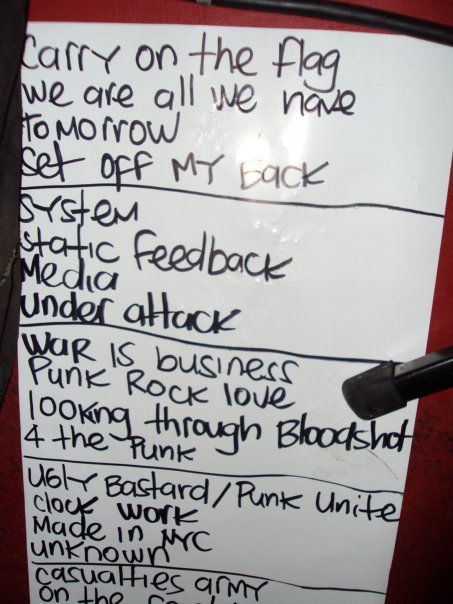 Carry on the flag
we are all we have
TOMORROW
Get off MY Back
SYSTEM
Static Feedback
Media
under attack
WAR IS business
Punk Rock love
looking through Bloodshot
4 the Punk
UGLY Bastard/Punk Unite
Clock work
Made in NYC
unknown
casualties army
on the